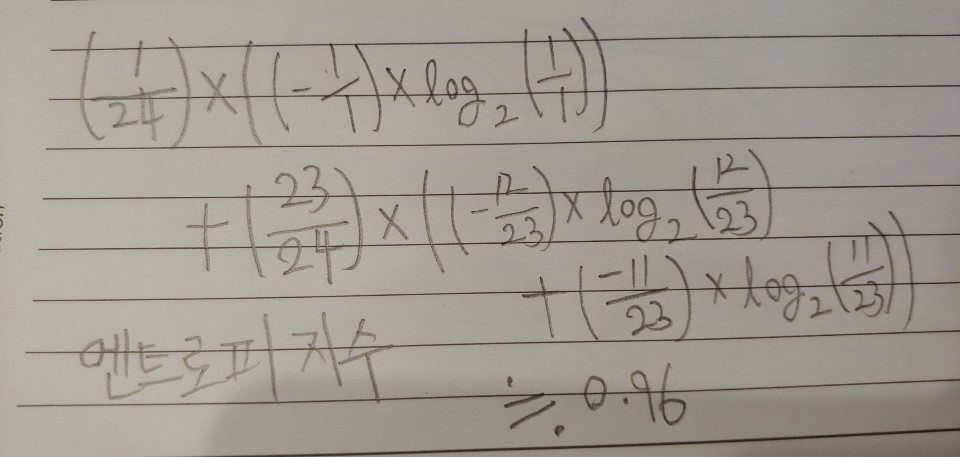 (1/24) × ((-1/1) × log₂(1/1))
+ (23/24) × ((-12/23) × log₂(12/23)
+ (-11/23) × log₂(11/23))
엔트로피 지수
≒ 0.96